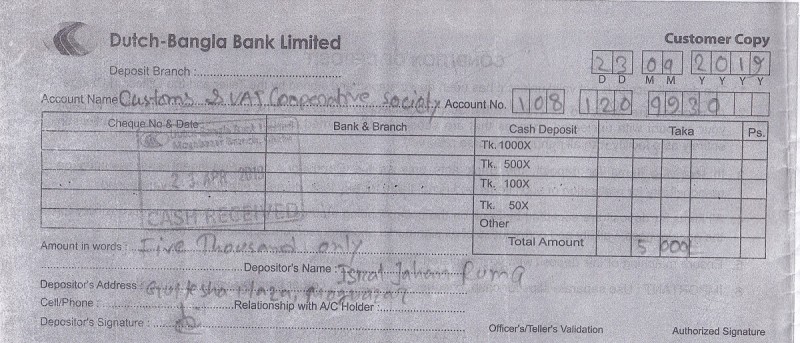 Dutch-Bangla Bank Limited
Customer Copy
Deposit Branch :
23 09 2019
D D M M Y Y Y Y
Account Name Customs & VAT Cooperative society Account No. 108 120 9939
Cheque No & Date Bank & Branch Cash Deposit Taka Ps.
Tk. 1000X
Tk. 500X
Tk. 100X
Tk. 50X
Other
23 APR 2019
CASH RECEIVED
Amount in words : Five Thousand only Total Amount 5000/-
Depositor's Name : Israt Jahan Ruma
Depositor's Address : Plaza,
Cell/Phone : Relationship with A/C Holder :
Depositor's Signature :
Officer's/Teller's Validation Authorized Signature